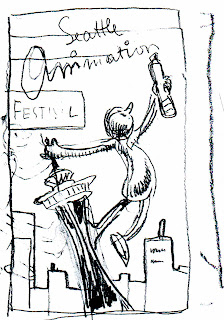 Seattle
Animation
FESTIVAL